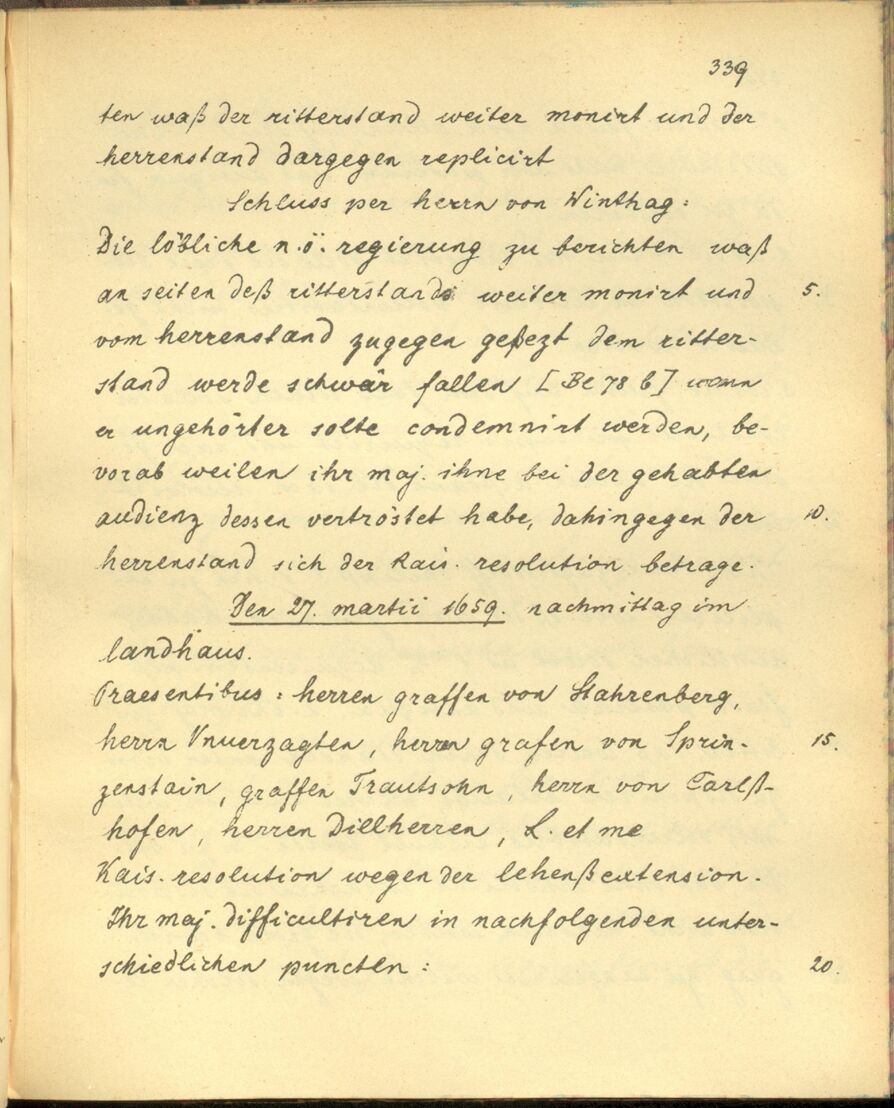 339
ten waß der ritterstand weiter monirt und der
herrenstand dargegen replicirt
Schluss per herrn von Winthag:
Die löbliche n.ö. regierung zu berichten waß
an seiten deß ritterstands weiter monirt und 5.
vom herrenstand zugegen gesezt dem ritter-
stand werde schwär fallen [Bl 78 b] wann
er ungehörter solte condemnirt werden, be-
vorab weilen ihr maj. ihne bei der gehabten
audienz dessen vertröstet habe, dahingegen der 10.
herrenstand sich der kais. resolution betrage.
Den 27. martii 1659. nachmittag im
landhaus.
Praesentibus: herren graffen von Stahrenberg,
herrn Vnuerzagten, herrn grafen von Sprin- 15.
zenstain, graffen Trautsohn, herrn von Carlß-
hofen, herren Dillherren, L. et me
Kais. resolution wegen der lehenßextension.
Ihr maj. difficultiren in nachfolgenden unter-
schiedlichen puncten: 20.